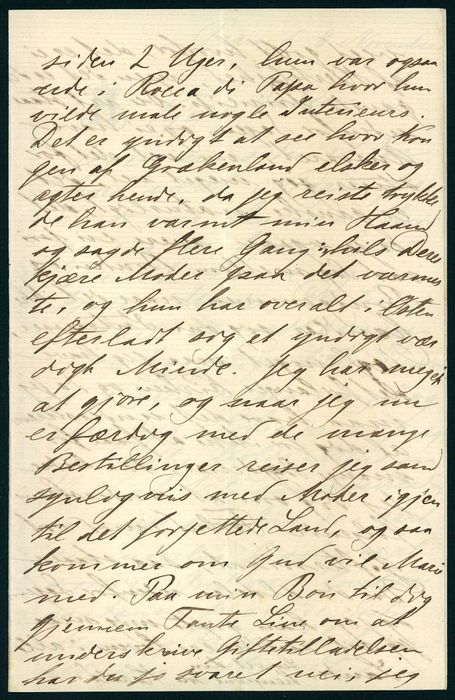 siden 2 Uger, hun var ogsaa
ude i Rocca di Papa hvor hun
vilde male nogle Interieurs.
Det er yndigt at see hvor Kon
gen af Grækenland elsker og
agter hende, da jeg reiste trykke
de han varmt min Haand
og sagde flere Gang: hils Deres
kjære Moder paa det varmes
te, og hun har overalt i Østen
efterladt sig et yndigt vær
digt Minde. Jeg har meget
at gjøre, og naar jeg nu
er færdig med de mange
Bestillinger reiser jeg sand
synligviis med Moder igjen
til det forjettede Land, og saa
kommer om Gud vil Marie
med. Paa min Bøn til dig
gjennem Tante Line om at
underskrive Giftetilladelsen
har du jo svaret nei, jeg